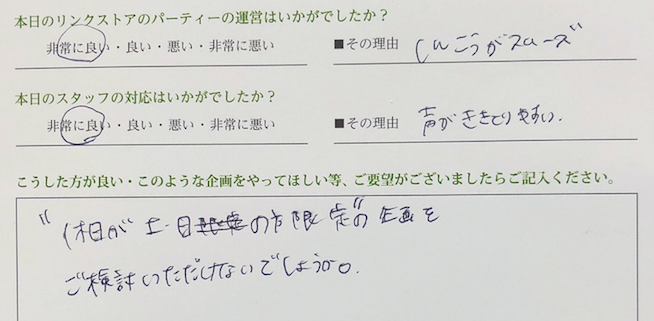 本日のリンクストアのパーティーの運営はいかがでしたか？
非常に良い・良い・悪い・非常に悪い ■その理由 しんこうがスムーズ
本日のスタッフの対応はいかがでしたか？
非常に良い・良い・悪い・非常に悪い ■その理由 声がききとりやすい.
こうした方が良い・このような企画をやってほしい等、ご要望がございましたらご記入ください。
"休日が土・日の方限定"の企画を
ご検討いただけないでしょうか。